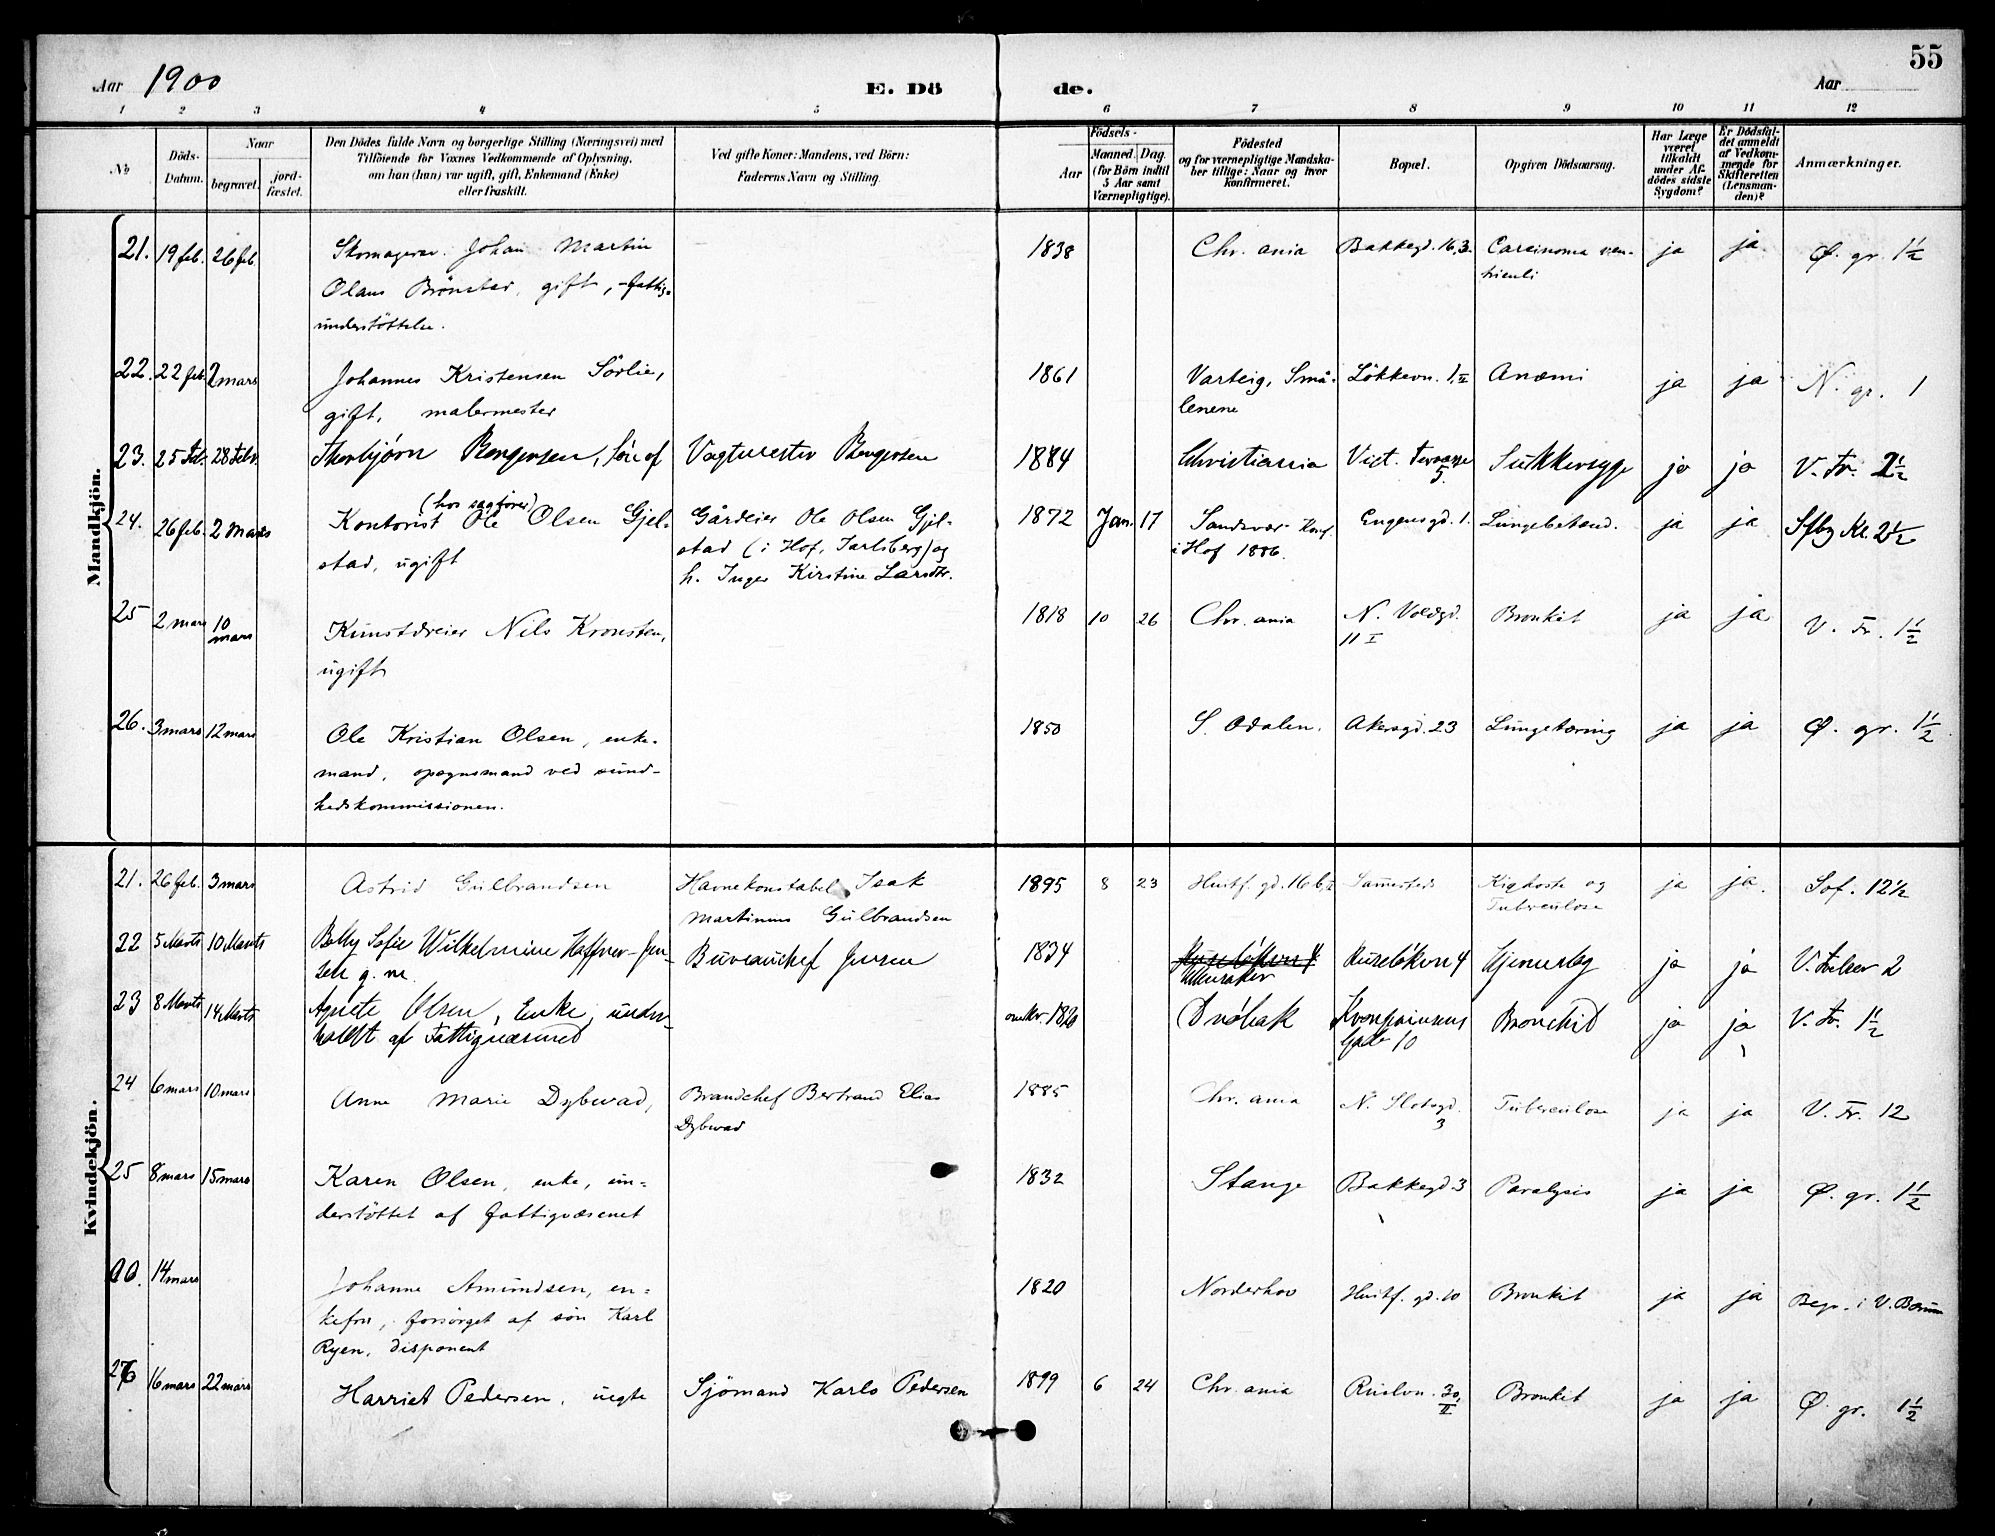 55
Aar 1900 E. Dö de. Aar
1 2 3 4 5 6 7 8 9 10 11 12
No
Döds-
Datum.
Naar
begravet.
jord-
fæstet.
Den Dödes fulde Navn og borgerlige Stilling (Næringsvei) med
Tilföiende for Voxnes Vedkommende af Oplysning,
om han (hun) var ugift, gift, Enkemand (Enke)
eller fraskilt.
Ved gifte Koner: Mandens, ved Börn:
Faderens Navn og Stilling.
Födsels-
Aar
Maaned Dag
(for Börn indtil
5 Aar samt
Værnepligtige).
Födested
og for værnepligtige Mandska-
ber tillige: Naar og hvor
konfirmeret.
Bopæl.
Opgiven Dödsaarsag.
Har Læge
været
tilkaldt
under Af-
dödes sidste
Sygdom?
Er Dödsfal-
det anmeldt
af Vedkom-
mende for
Skifteretten
(Lensman-
den)?
Anmærkninger.
Mandkjön.
21. 19 feb. 26 feb. Skomager. Johan Martin 1838 Chr. ania Bakkegd. 16,3. Carcinoma ven- ja ja Ø. gr. 1½
Olaus Brönstad, gift, fattig- trienli
understöttelse.
22. 22 feb. 2 mars Johannes Kristensen Sörlie, 1861 Varteig, Smaa- Lökkevn. 1, II Anæmi ja ja N. gr. 1
gift, malermester lenene
23. 25 Feb. 28 Febr. Thorbjørn Bengersen, Søn af Vagtmester Bengersen 1884 Christiania Vict. Terasse Sukkersyge ja ja V. Fr. 2½
5.
(hos sagfører)
24. 26 feb. 2 mars Kontorist Ole Olsen Gjel- Gårdeier Ole Olsen Gjel- 1872 Jan. 17 Sandsvær Konf. Eugensgd. 1. Lungebetænd. ja ja Sfbg Kl. 2½
stad, ugift stad (i Hof, Jarlsberg) og i Hof 1886.
h. Inger Kirstine Larsdtr.
25 2 mars 10 mars Kunstdreier Nils Kronsten, 1818 10 26 Chr. ania N. Voldgd. Bronkit ja ja V. Fr. 1½
ugift 11 I
26. 3 mars 12 mars Ole Kristian Olsen, enke- 1850 S. Odalen. Akersgd. 23 Lungetæring ja ja Ø. gr. 1½
mand, opsynsmand ved sund-
hedskommissionen.
Kvindekjön.
21. 26 feb. 3 mars Astrid Gulbrandsen Havnekonstabel Isak 1895 8 23 Huitf. gd. 16 b, I Sammesteds Kighoste og ja ja. Sof. 12½
Martinus Gulbrandsen Tuberculose
22 5 Marts 10 Marts Betty Sofie Wilhelmine Haffner-Jen- Bureauchef Jensen 1834 Ruseløkvn 4 Ruseløkvn 4 Hjerneslag ja ja V. Frelser 2
sen g. m. Ullensaker
23 8 Marts 14 Marts Agnete Olsen, Enke, under- omkr. 1820 Drøbak Kronprinsens Bronchit ja ja V. Fr. 1½
holdt af Fattigvæsenet Gade 10
24 6 mars 10 mars Anne Marie Dybwad, Brandchef Bertrand Elias 1885 Chr. ania N. Slotsgd. Tuberculose ja ja V. Fr. 12
Dybwad 3
25 8 mars 15 mars Karen Olsen, enke, un- 1832 Stange Bakkegd 3 Paralysis ja ja Ø. gr. 1½
derstöttet af fattigvæsenet
00. 14 mars Johanne Amundsen, en- 1820 Norderhov Huitf. gd. 10 Bronkit ja ja Begr. i V. Bærum
kefru, forsörget af sön Karl
Ryen, disponent
26 16 mars 22 mars Harriet Pedersen, uegte Sjömand Karlo Pedersen 1899 6 24 Chr. ania Ruslvn. 30, Bronkit ja ja Ø. gr. 1½
II